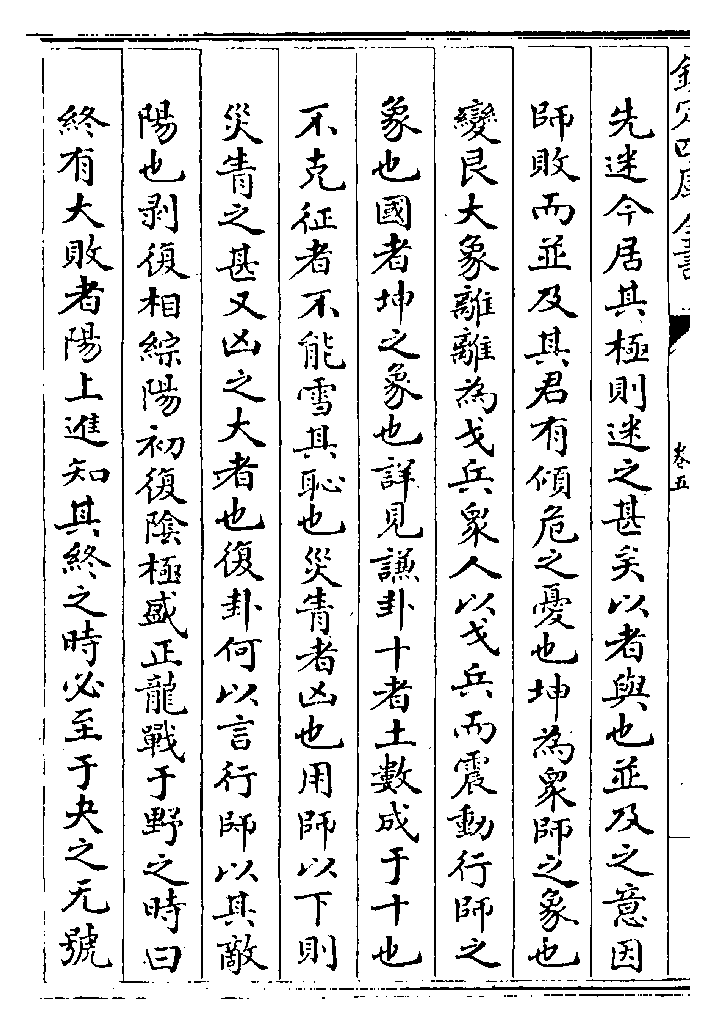 欽定四庫全書
卷五
先迷今居其極則迷之甚矣以者與也並及之意因
師敗而並及其君有傾危之憂也坤為衆師之象也
變艮大象離離為戈兵衆人以戈兵而震動行師之
象也國者坤之象也詳見謙卦十者土數成于十也
不克征者不能雪其恥也災眚者凶也用師以下則
災眚之甚又凶之大者也復卦何以言行師以其敵
陽也剥復相綜陽初復陰極盛正龍戰于野之時曰
終有大敗者陽上進知其終之時必至于夬之无號